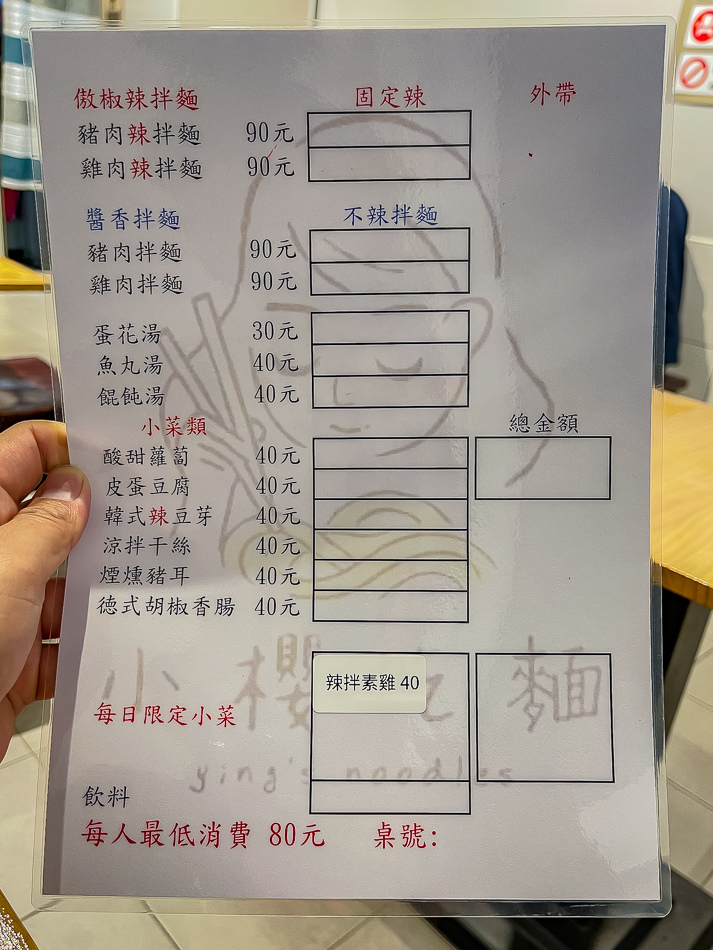 傲椒辣拌麵 固定辣 外帶
豬肉辣拌麵 90元
雞肉辣拌麵 90元
醬香拌麵 不辣拌麵
豬肉拌麵 90元
雞肉拌麵 90元
蛋花湯 30元
魚丸湯 40元
餛飩湯 40元
小菜類 總金額
酸甜蘿蔔 40元
皮蛋豆腐 40元
韓式辣豆芽 40元
涼拌干絲 40元
煙燻豬耳 40元
德式胡椒香腸 40元
小櫻吃麵
辣拌素雞 40
每日限定小菜
ying's noodles
飲料
每人最低消費 80元 桌號: